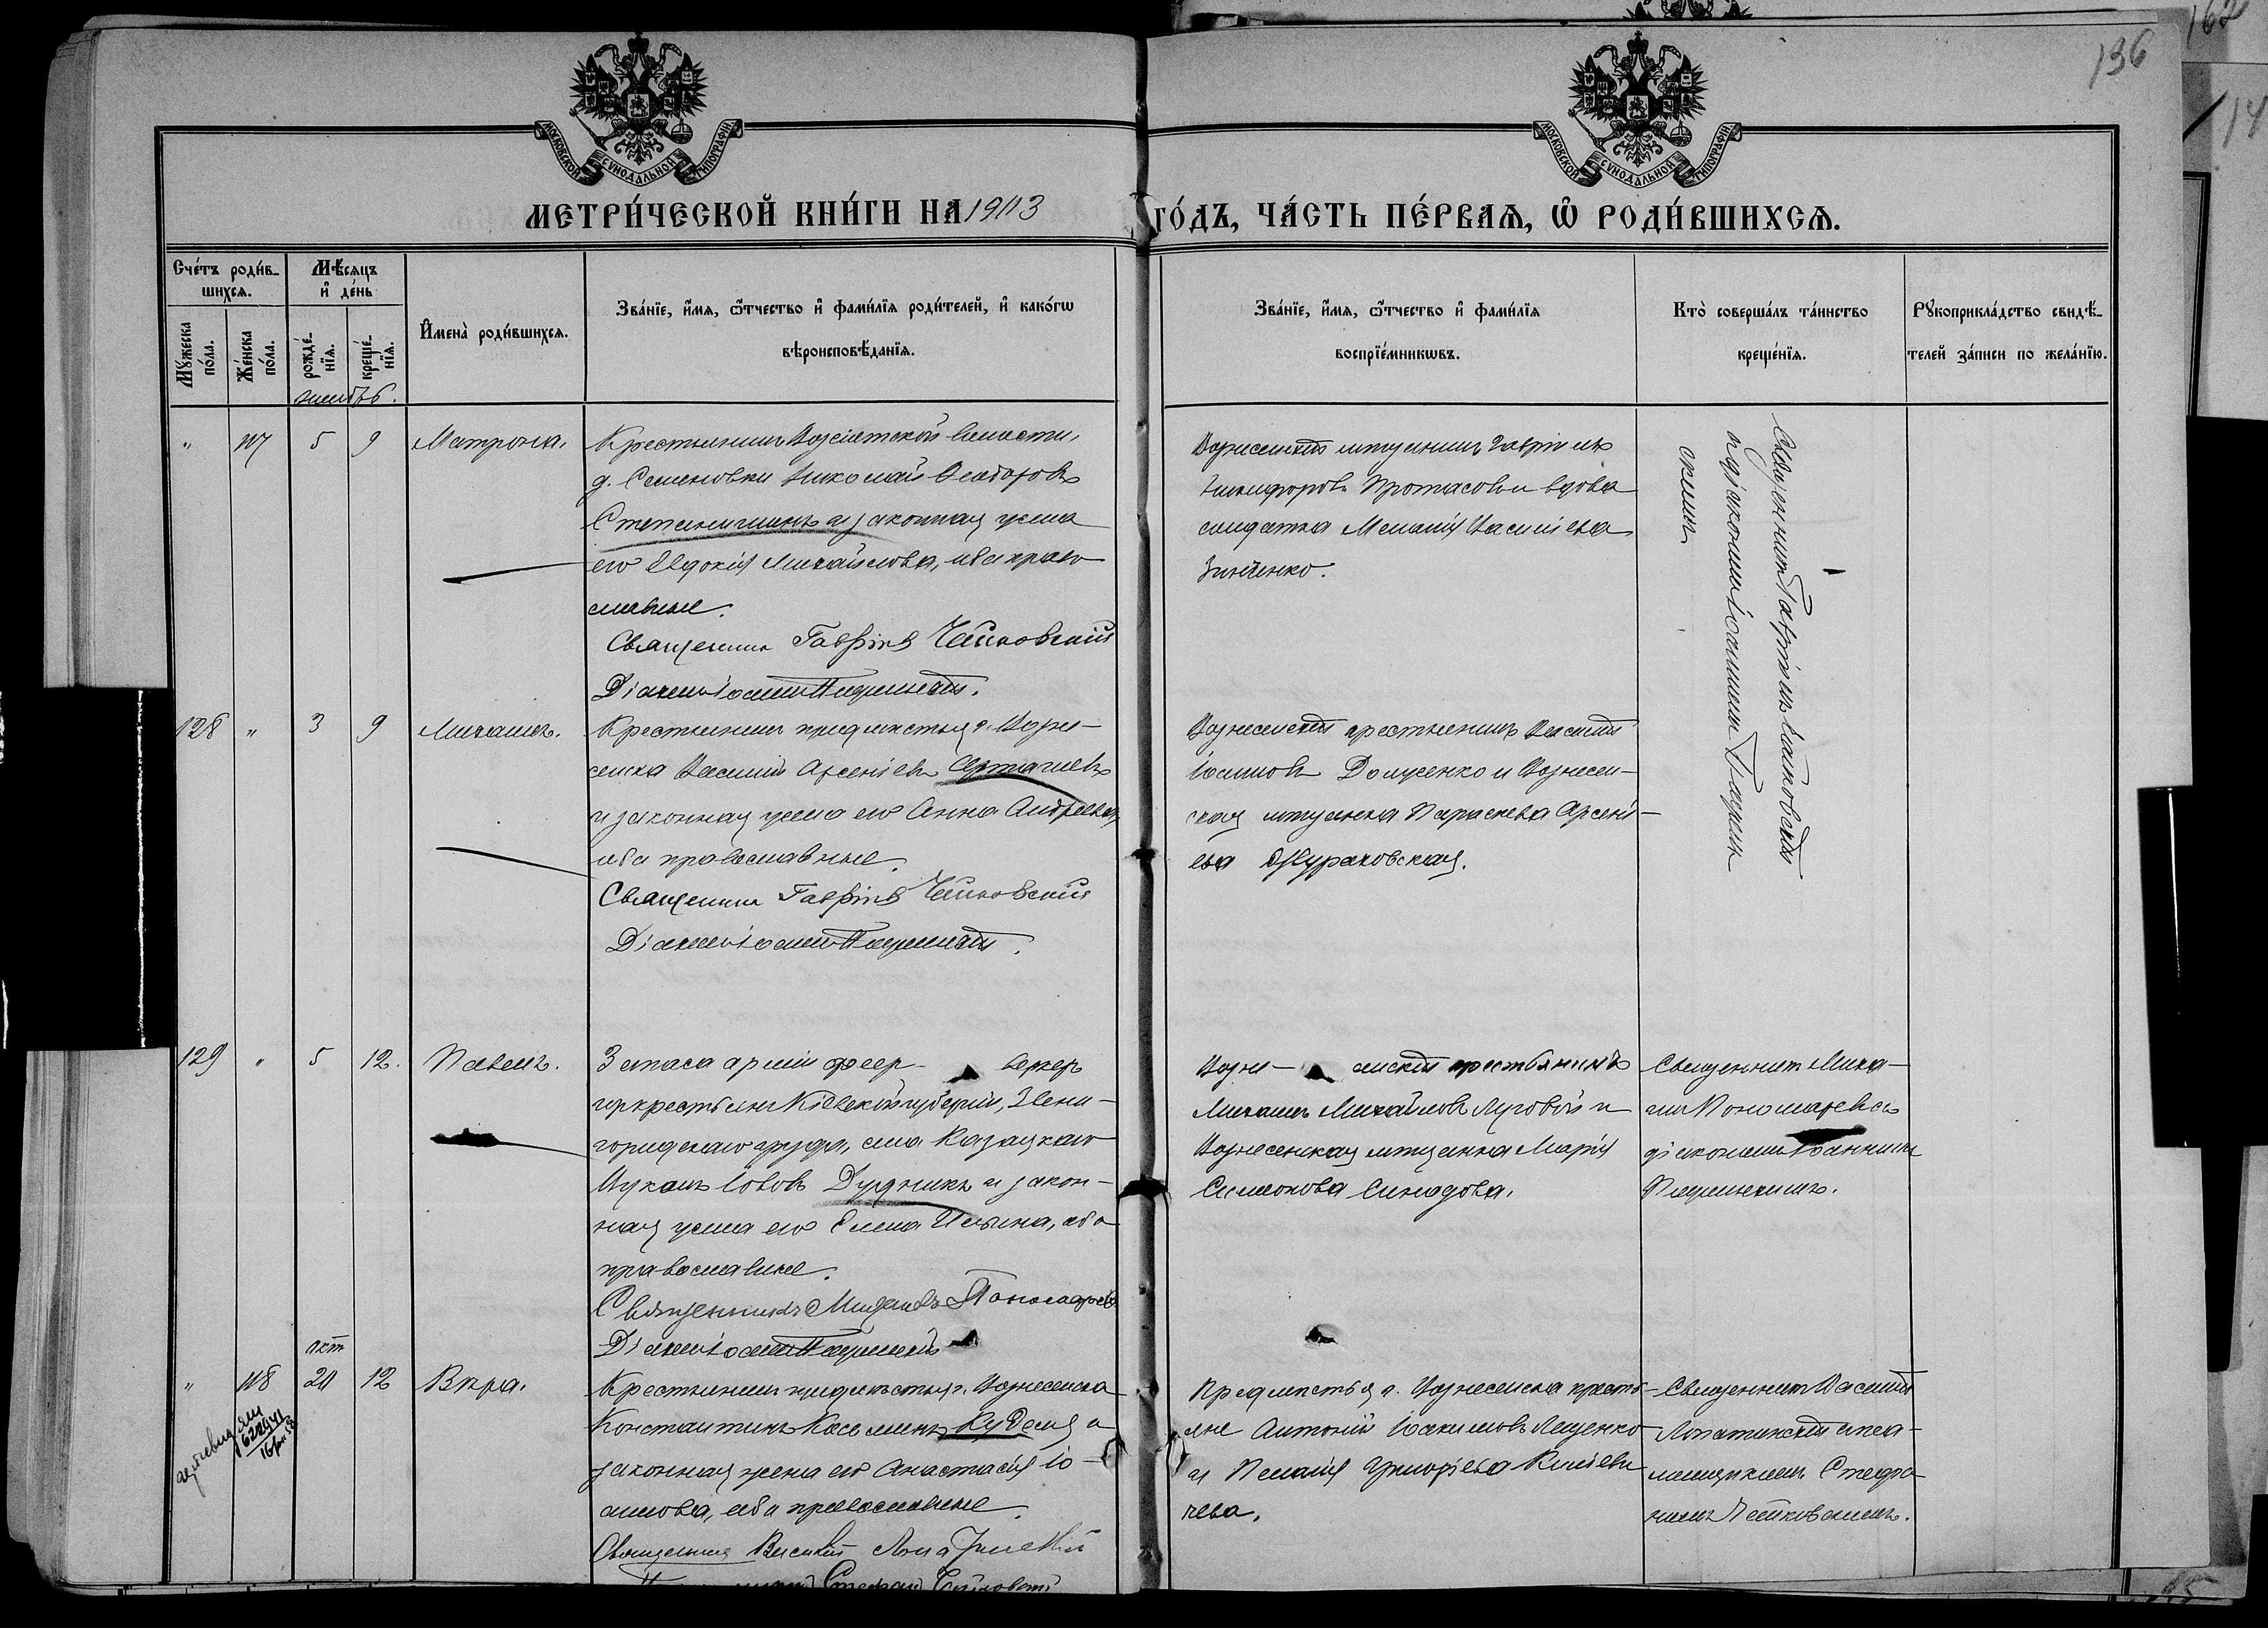 136
МОСКОВСКОЙ СѴНОДАЛЬНОЙ ТИПОГРАФІИ
МОСКОВСКОЙ СѴНОДАЛЬНОЙ ТИПОГРАФІИ
МЕТРИ́ЧЕСКОЙ КНИ́ГИ НА 1903 ГО́ДЪ, ЧА́СТЬ ПЕ́РВАѦ, Ѡ҆ РОДИ́ВШИХСѦ.
Сче́тъ роди́в-
шихсѧ.
Мꙋ́жеска по́ла.
Же́нска по́ла.
Мѣ́сѧцъ
и҆ де́нь
рожде́-
нїѧ.
креще́-
нїѧ.
И҆мена̀ роди́вшихсѧ.
Зва́нїе, и҆́мѧ, ѻ҆́тчество и҆ фами́лїѧ роди́телей, и҆ како́гѡ
вѣроисповѣ́данїѧ.
Зва́нїе, и҆́мѧ, ѻ҆́тчество и҆ фами́лїѧ
воспрїе́мникѡвъ.
Кто̀ соверша́лъ та́инство
креще́нїѧ.
Рꙋкоприкла́дство свидѣ́-
телей за́писи по жела́нїю.
" 117 5 9 Матрона.
Крестьянинъ волости,
д. Семеновки Николай Ѳеодоровъ
и законная жена
его Евдокія Михайлова, оба право
славные.
Священникъ Гавріилъ Чайковскій
Діаконъ Іоаннъ
Вознесенскій мѣщанинъ Гавріилъ
Никифоровъ Протасовъ и вдова
солдатка Меланія Васильева
Зинченко.
Священникъ Гавріилъ Чайковскій
съ діакономъ Іоанномъ
128 " 3 9 Михаилъ.
Крестьянинъ предмѣстья г. Возне-
сенска Василій Арсеніевъ
и законная жена его Анна Андреева,
оба православные.
Священникъ Гавріилъ Чайковскій
Діаконъ Іоаннъ
Вознесенскій крестьянинъ Василій
Іоанновъ Долженко и Вознесен-
ская мѣщанка Параскева Арсені-
ева Жураховская.
129 " 5 12. Павелъ.
Запаса арміи феер- веркеръ
крестьян. Кіевской губерніи, Звени-
городскаго уѣзда, села Казацкаго
Лукашъ Іововъ Дудникъ и закон-
ная жена его Елена Ильина, оба
православные.
Священникъ Михаилъ Пономаревъ
Діаконъ Іоаннъ
Возне- сенскій крестьянинъ
Михаилъ Михайловъ Луговой и
Вознесенская мѣщанка Марія
Симеонова Синодова.
Священникъ Миха-
илъ Пономаревъ съ
діакономъ Іоанномъ
окт
" 118 20 12 Вѣра.
Крестьянинъ предмѣстья г. Вознесенска
Константинъ Косминъ и
законная жена его Анастасія Іо-
аннова, оба православные.
Священникъ Василій Лопатинскій
Стефанъ Чайковскій
Предмѣстья г. Вознесенска кресть-
яне Антоній Іоакимовъ Лещенко
и Пелагія Григорьева
чева.
Священникъ Василій
Лопатинскій съ пса-
ломщикомъ Стефа-
номъ Чайковскимъ.